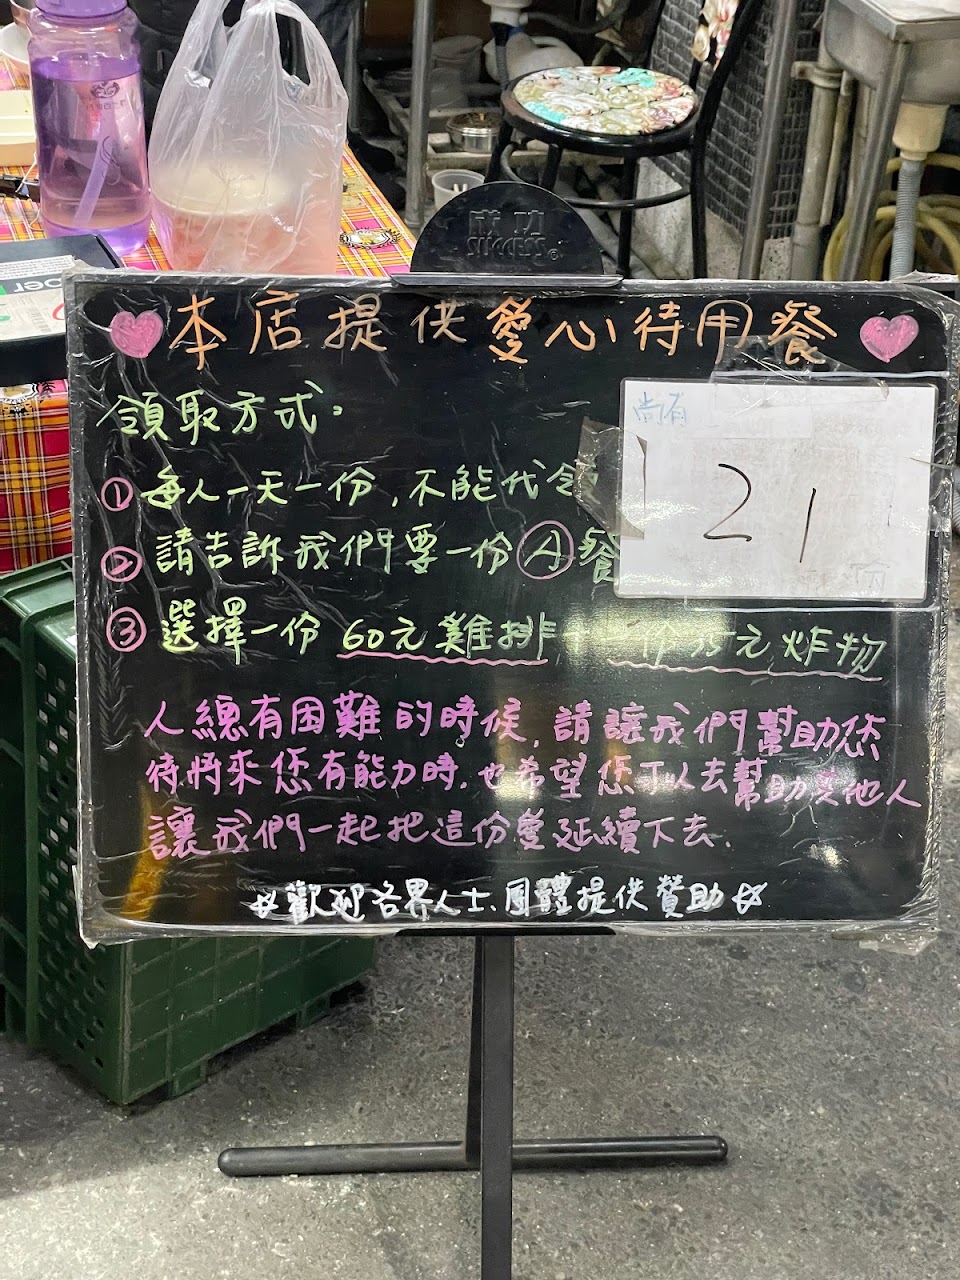 成功
SUCCESS
本店提供愛心待用餐
領取方式:
尚有
21
份
① 每人一天一份,不能代領
② 請告訴我們要一份Ⓐ餐
③ 選擇一份 60元雞排+ 份35元炸物
人總有困難的時候,請讓我們幫助您
待將來您有能力時,也希望您可以去幫助其他人
讓我們一起把這份愛延續下去.
☆歡迎各界人士、團體提供贊助☆